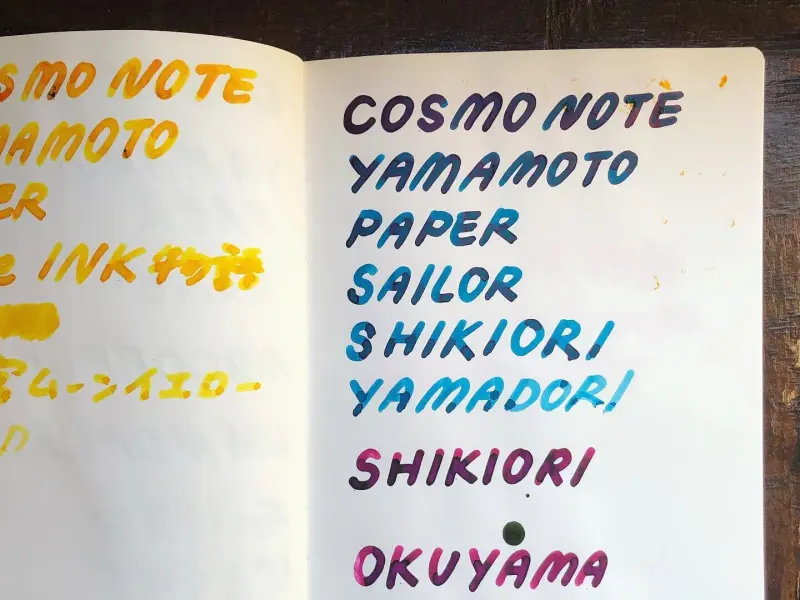 NOTE
INK 物語
ムーンイエロー
COSMO NOTE
YAMAMOTO
PAPER
SAILOR
SHIKIORI
YAMADORI
SHIKIORI
OKUYAMA